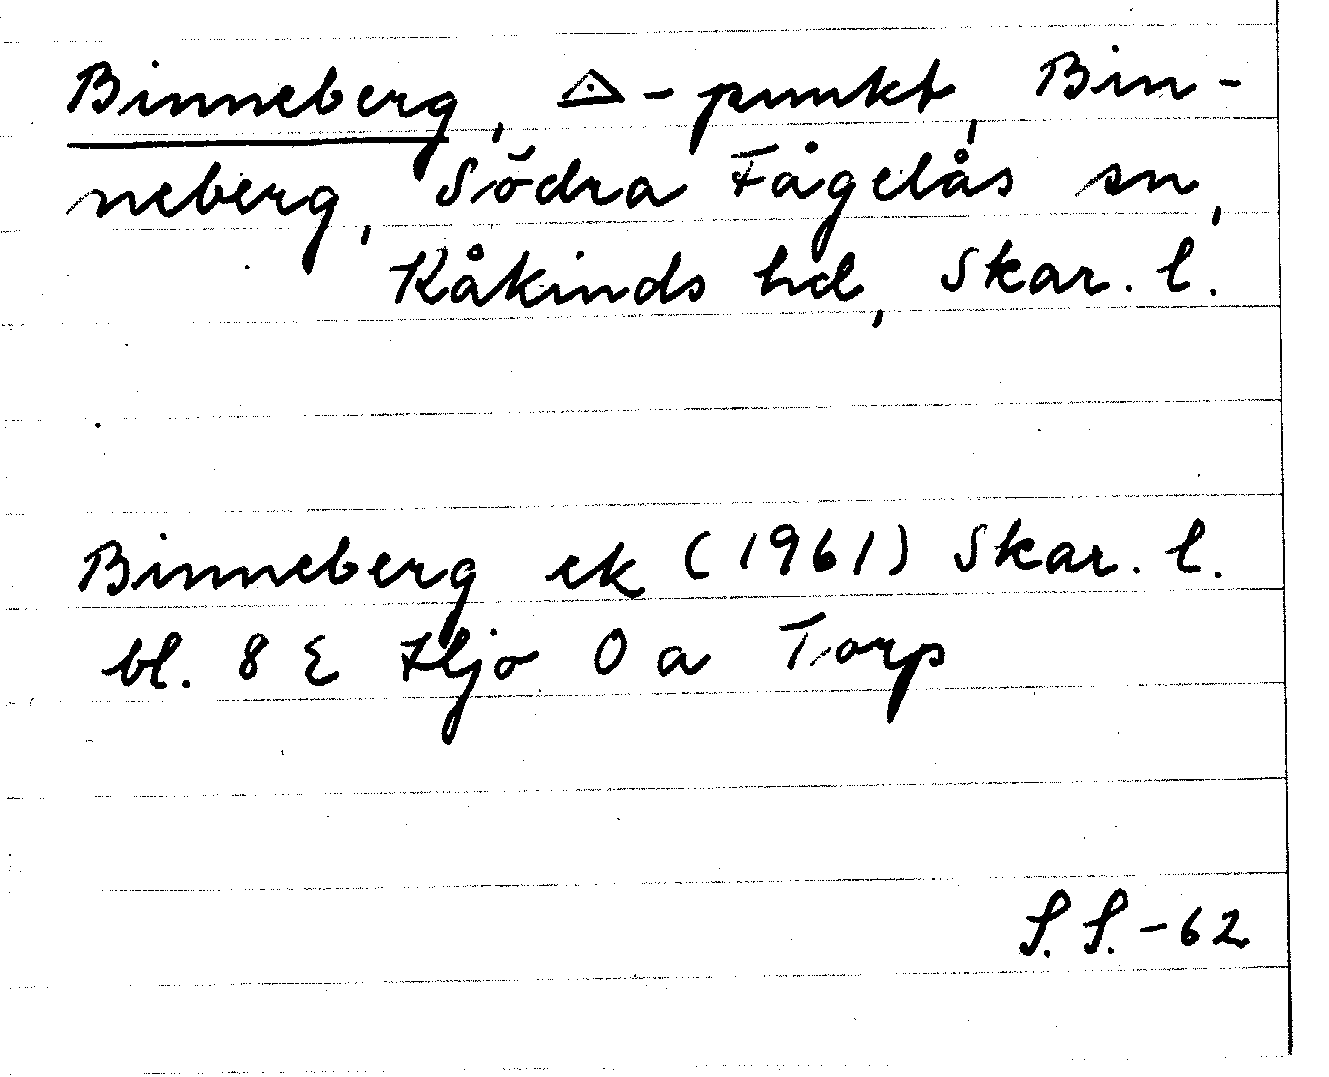 Binneberg, △-punkt, Bin-
neberg, Södra Fågelås sn,
Kåkinds hd, Skar. l.
Binneberg ek (1961) Skar. l.
bl. 8 E Hjo 0 a Torp
S. S. -62